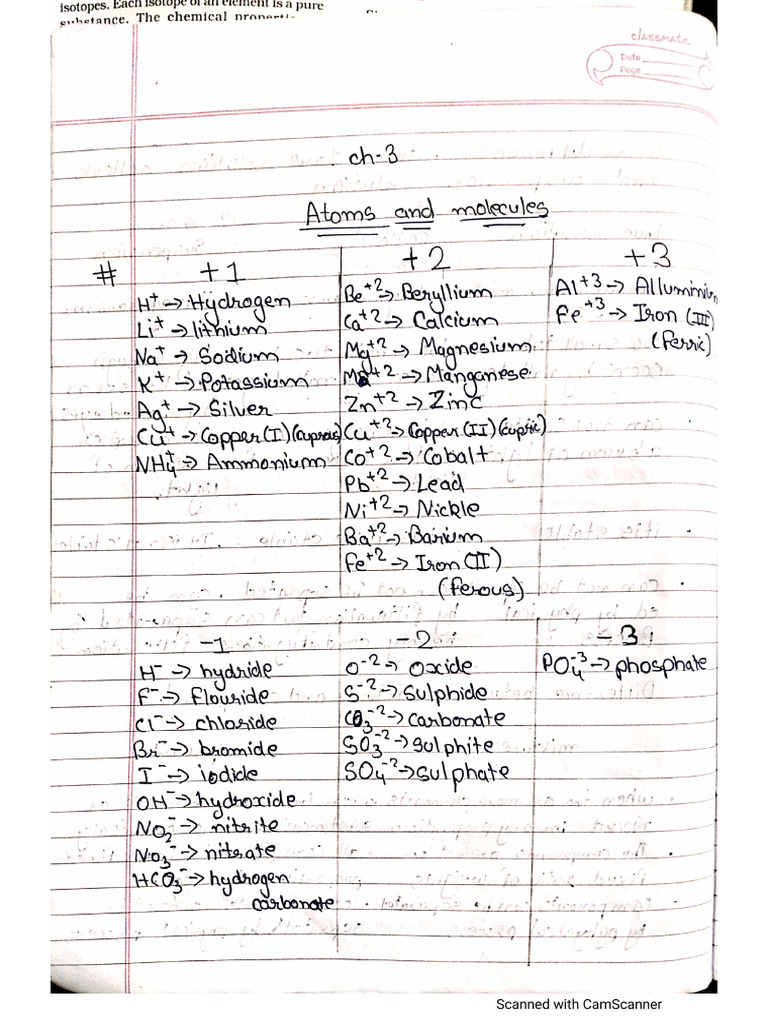 isotopes. Each isotope of an element is a pure
substance. The chemical
classmate
Date
Page
ch-3
Atoms and molecules
# +1 +2 +3
H⁺ → Hydrogen
Li⁺ → lithium
Na⁺ → Sodium
K⁺ → Potassium
Ag⁺ → Silver
Cu⁺ → Copper (I) (cuprous)
NH₄⁺ → Ammonium
Be⁺² → Beryllium
Ca⁺² → Calcium
Mg⁺² → Magnesium
→ Manganese
Zn⁺² → Zinc
Cu⁺² → Copper (II) (cupric)
Co⁺² → Cobalt
Pb⁺² → Lead
Ni⁺² → Nickle
Ba⁺² → Barium
Fe⁺² → Iron (II)
(ferous)
Al⁺³ → Alluminium
Fe⁺³ → Iron (III)
(ferric)
-1 -2 -3
H⁻ → hydride
F⁻ → flouride
Cl⁻ → chloride
Br⁻ → bromide
I⁻ → iodide
OH⁻ → hydroxide
NO₂⁻ → nitrite
NO₃⁻ → nitrate
HCO₃⁻ → hydrogen
carbonate
O⁻² → Oxide
S⁻² → Sulphide
CO₃⁻² → carbonate
SO₃⁻² → sulphite
SO₄⁻² → sulphate
PO₄⁻³ → phosphate
Scanned with CamScanner